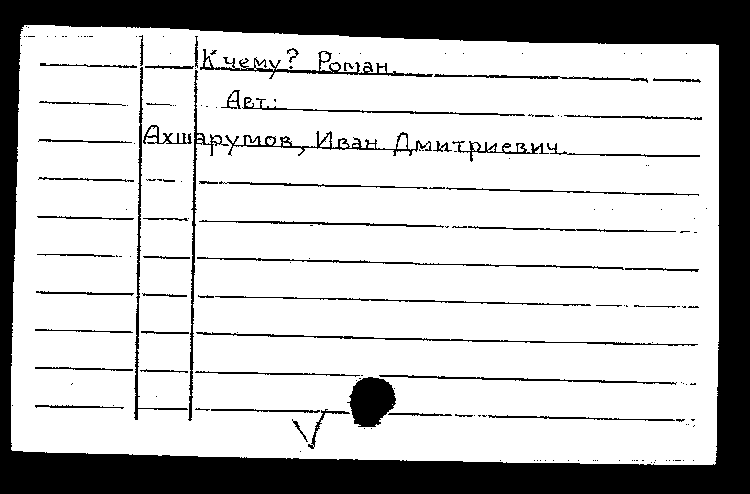 К чему? Роман.
Авт.:
Ахшарумов, Иван Дмитриевич.